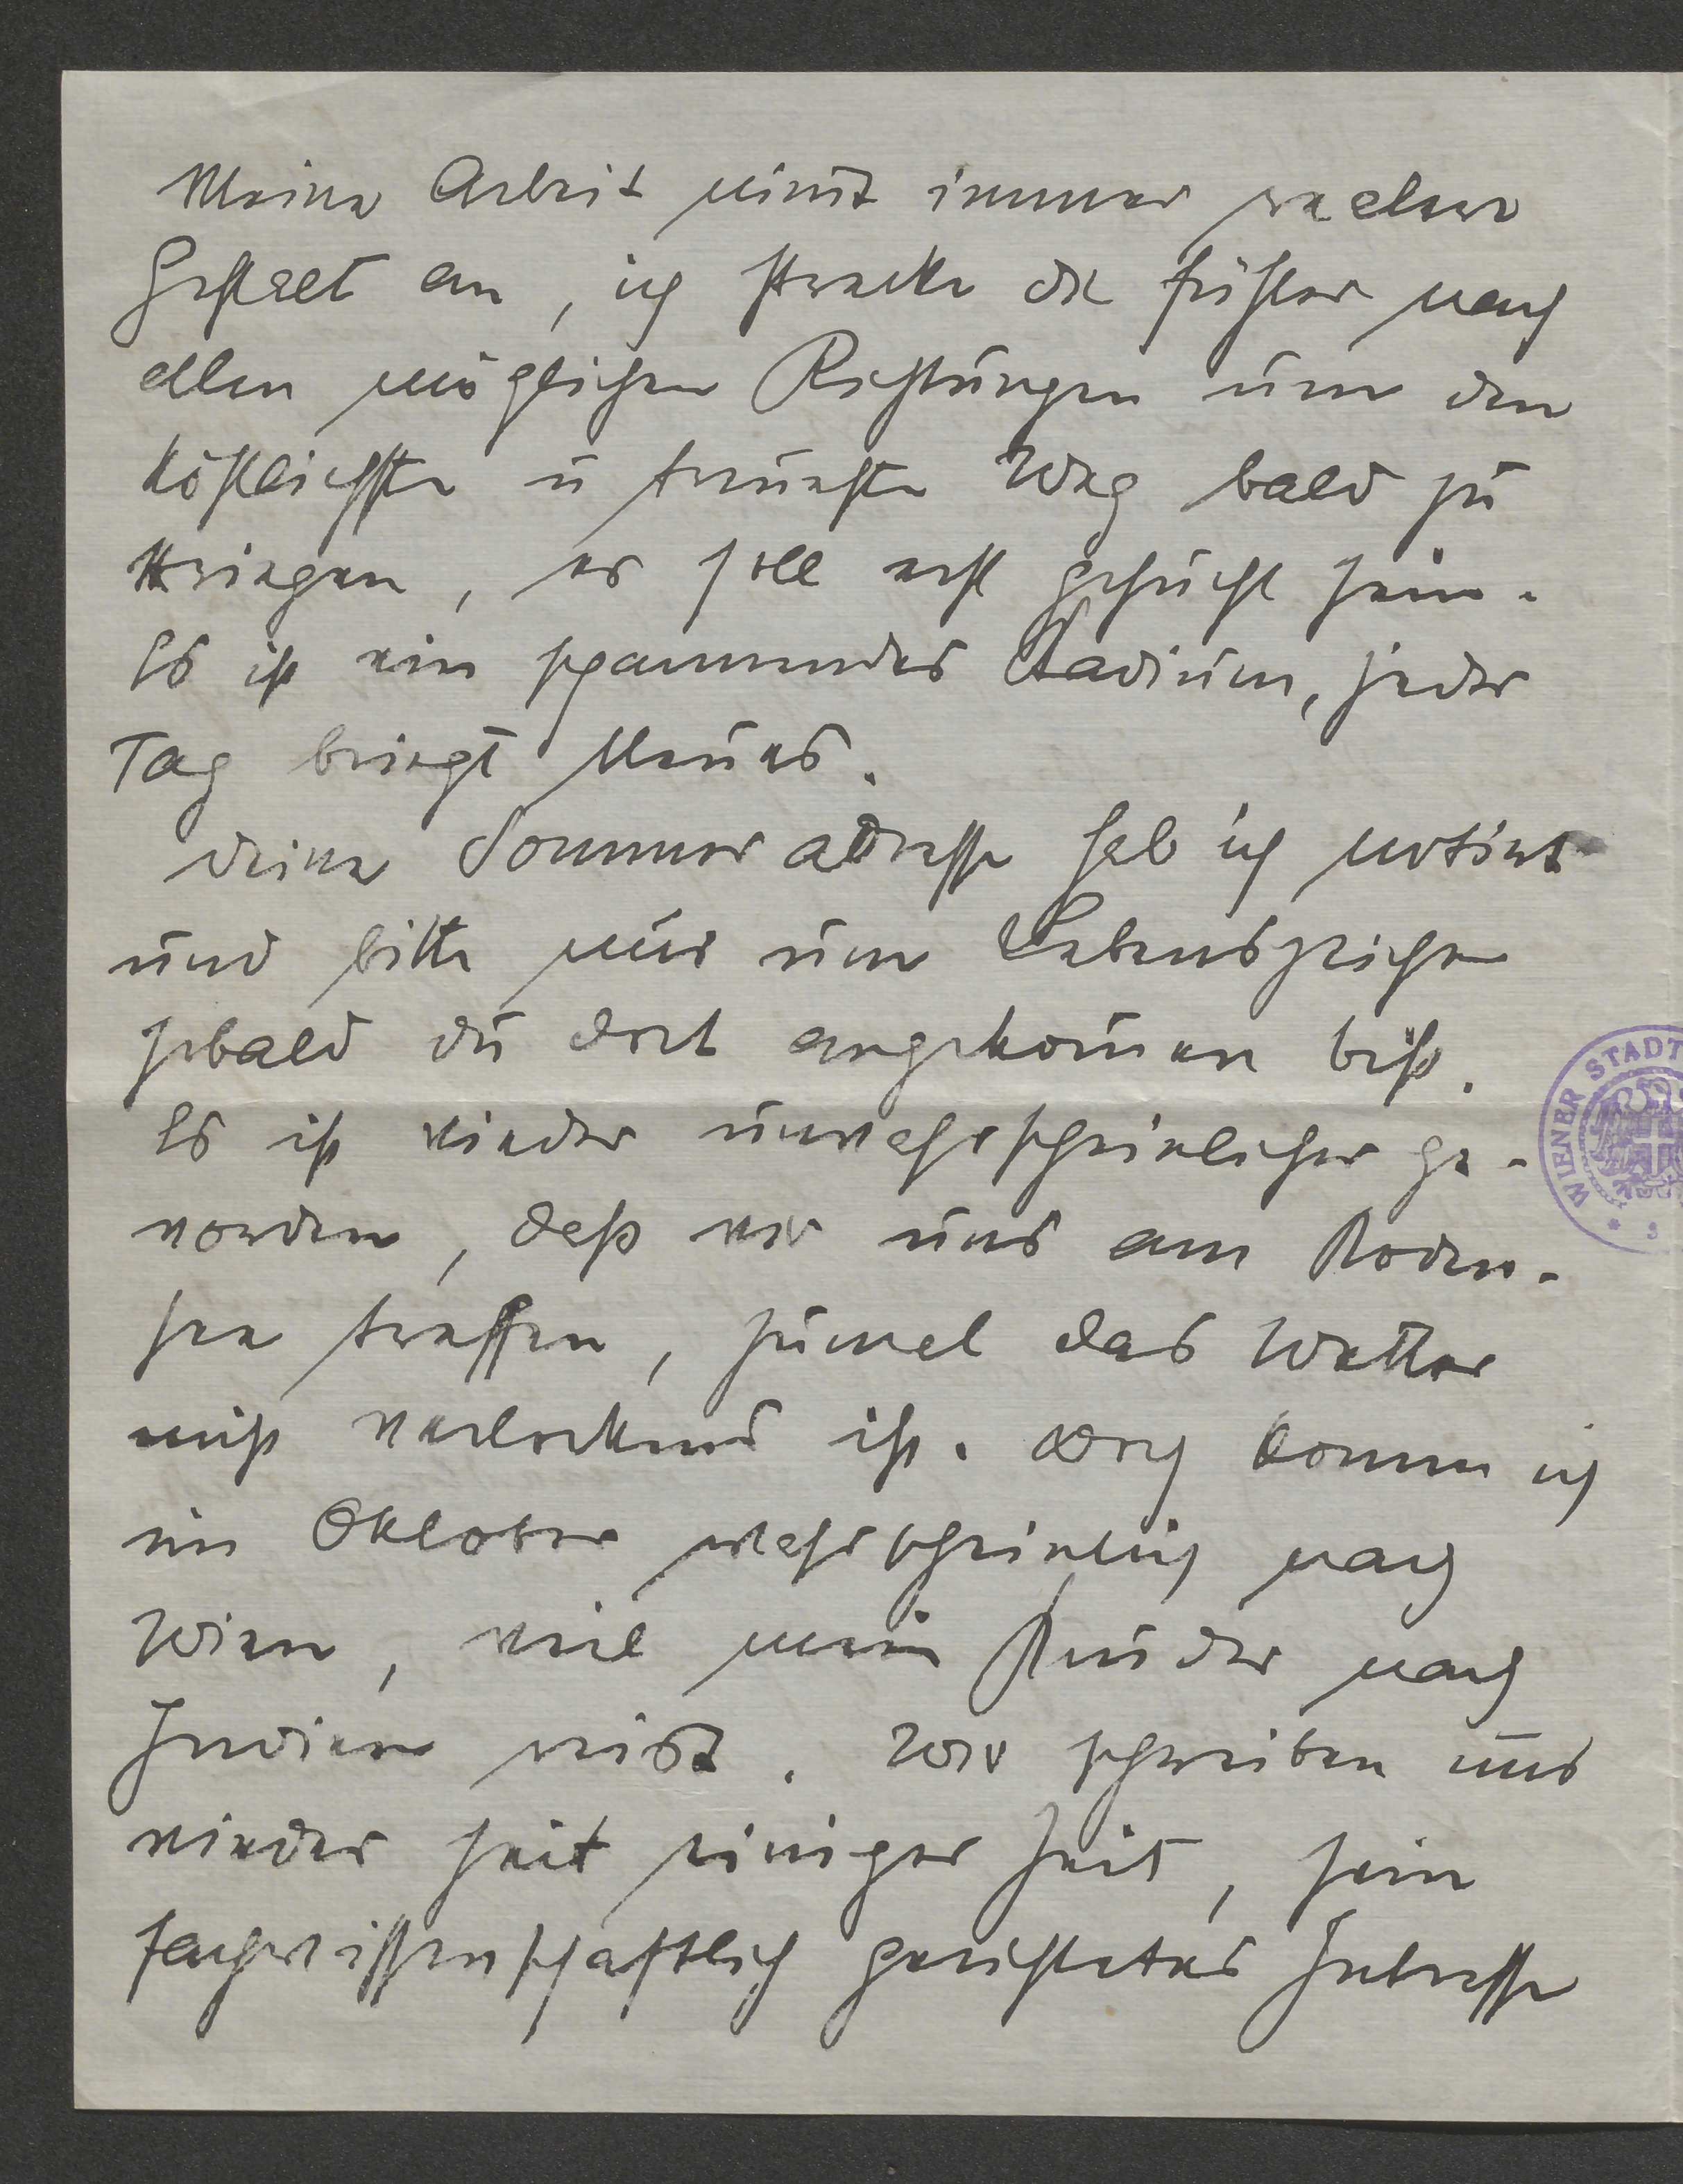 Meine Arbeit nimt immer realere
Gestalt an, ich strecke die Fühler nach
allen möglichen Richtungen um den
köstlichste u teuerste Weg bald zu
kriegen, er soll erst gesucht sein.
Es ist ein spannendes Stadium, jeder
Tag bringt Neues.
Deine Sommeradresse hab ich notiert
und bitte nur um Lebenszeichen
sobald du dort angekom̄en bist.
Es ist wieder unwahrscheinlicher ge-
worden, dass wir uns am Boden-
see treffen, zumal das Wetter
nicht verlockend ist. Doch komme ich
im Oktober wahrscheinlich nach
Wien, weil mein Bruder nach
Indien reist. Wir schreiben uns
wieder seit einiger Zeit, sein
fachwissenschaftlich gerichtetes Interesse
WIENER STADT